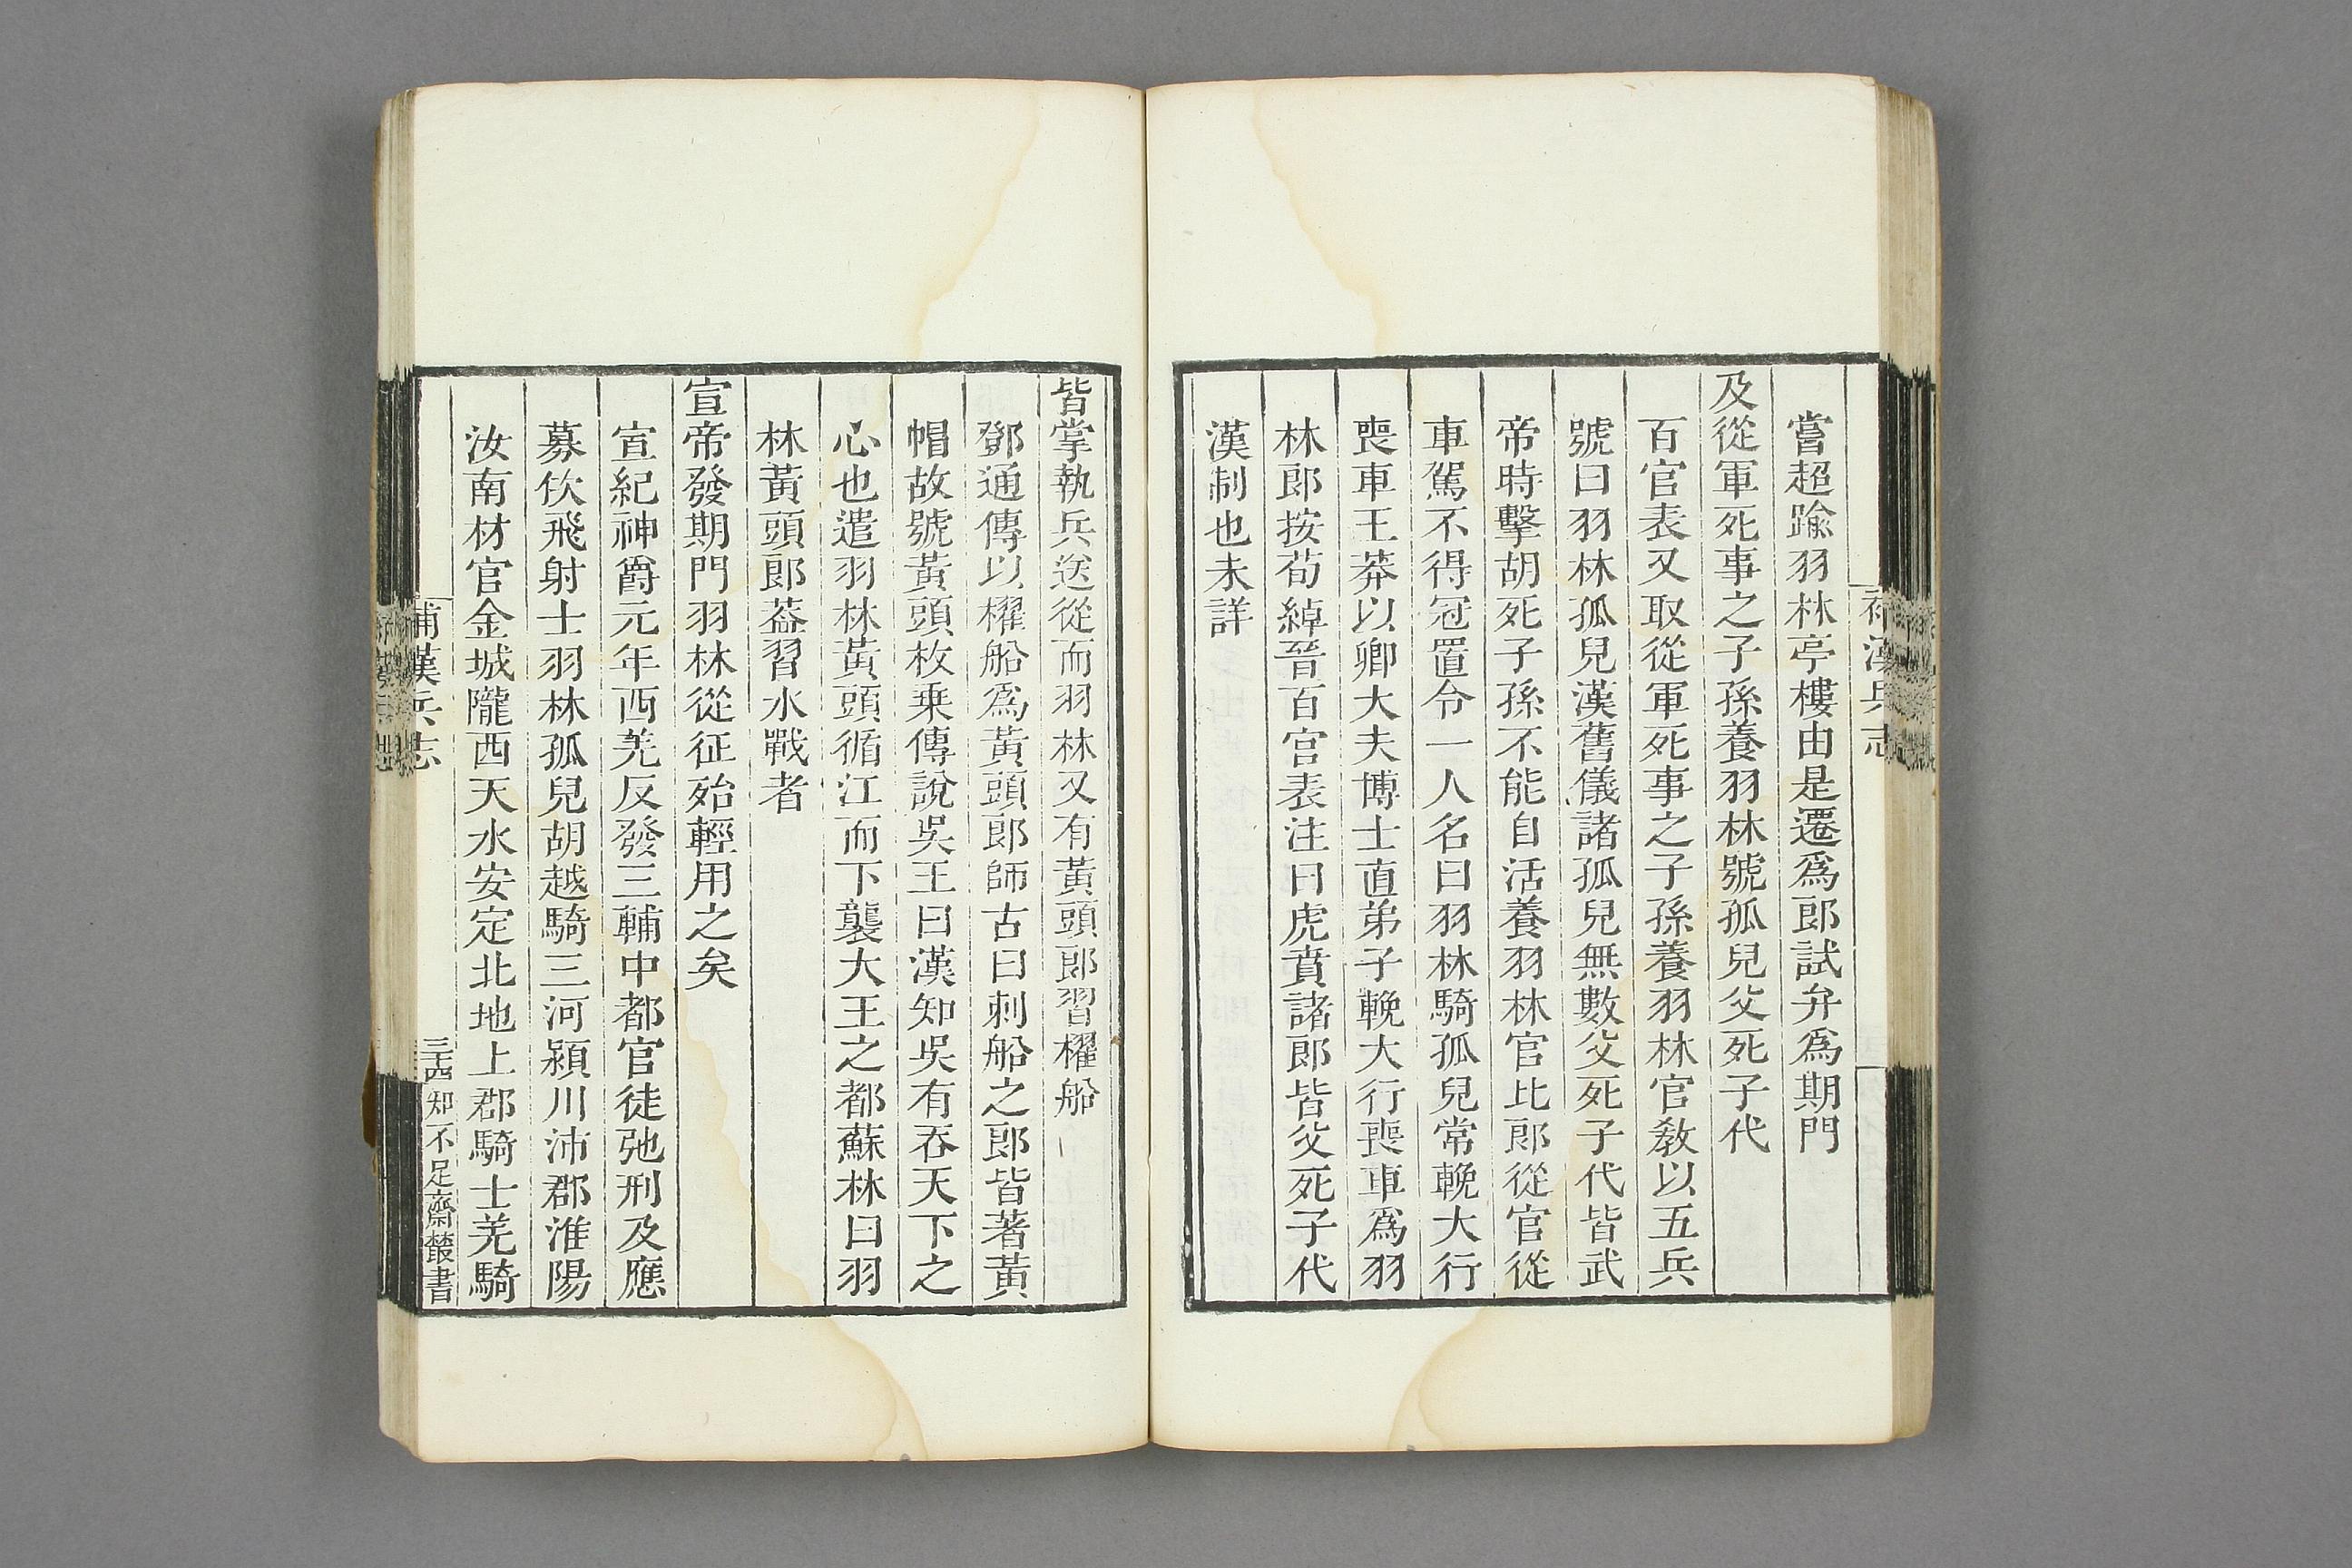 補漢兵志
嘗超踰羽林亭樓由是遷爲郎試弁爲期門
及從軍死事之子孫養羽林號孤兒父死子代
百官表又取從軍死事之子孫養羽林官教以五兵
號曰羽林孤兒漢舊儀諸孤兒無數父死子代皆武
帝時擊胡死子孫不能自活養羽林官比郎從官從
車駕不得冠置令一人名曰羽林騎孤兒常輓大行
喪車王莽以卿大夫博士直弟子輓大行喪車爲羽
林郎按荀綽晉百官表注曰虎賁諸郎皆父死子代
漢制也未詳
皆掌執兵送從而羽林又有黃頭郎習櫂船
鄧通傳以櫂船爲黃頭郎師古曰刺船之郎皆著黃
帽故號黃頭枚乗傳說吳王曰漢知吳有吞天下之
心也遣羽林黃頭循江而下襲大王之都蘇林曰羽
林黃頭郎葢習水戰者
宣帝發期門羽林從征始輕用之矣
宣紀神爵元年西羌反發三輔中都官徒弛刑及應
募佽飛射士羽林孤兒胡越騎三河潁川沛郡淮陽
汝南材官金城隴西天水安定北地上郡騎士羌騎
補漢兵志
三十四
知不足齋叢書